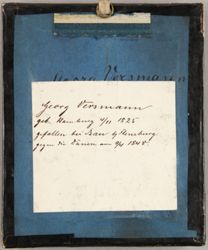 Georg Versmann
Georg Versmann
geb. Hamburg 4/11 1825
gefallen bei Bau b/Flensburg
gegen die Dänen am 9/4 1848.